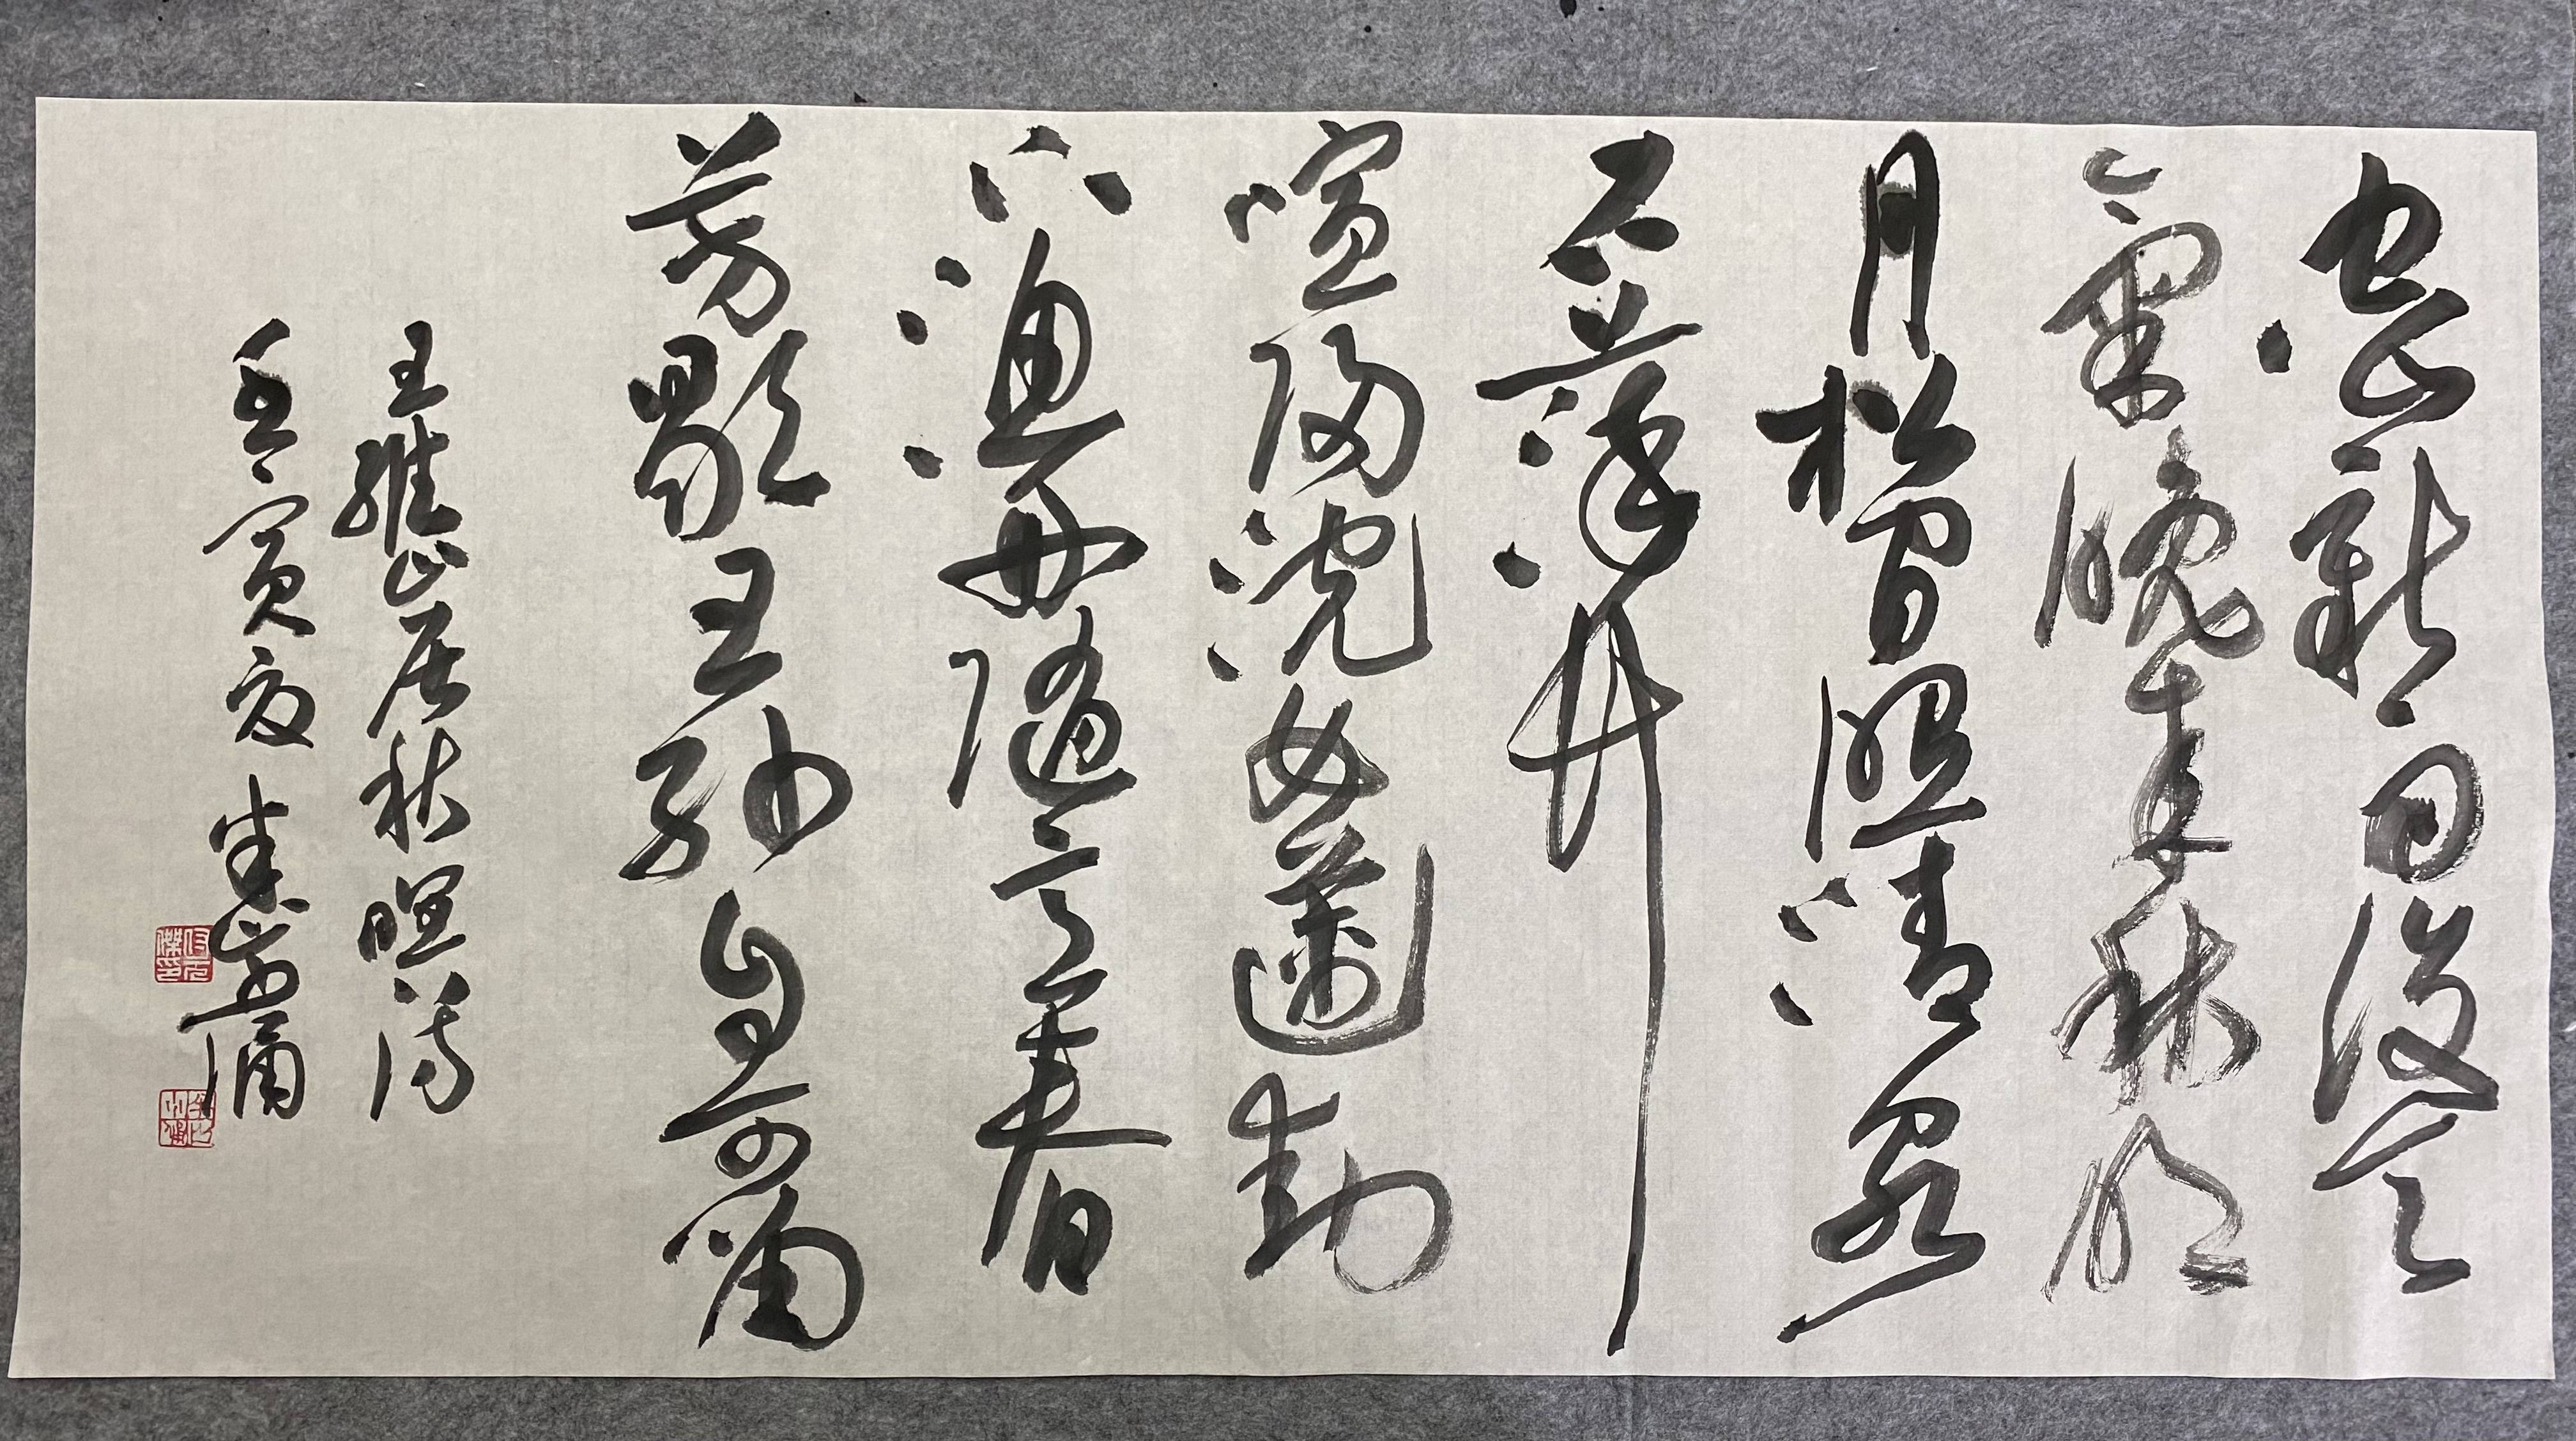 空山新雨後天
氣晚來秋明
月松間照清泉
石上流竹
喧歸浣女蓮動
下漁舟隨意春
芳歇王孫自可留
王維山居秋暝詩
壬寅夏